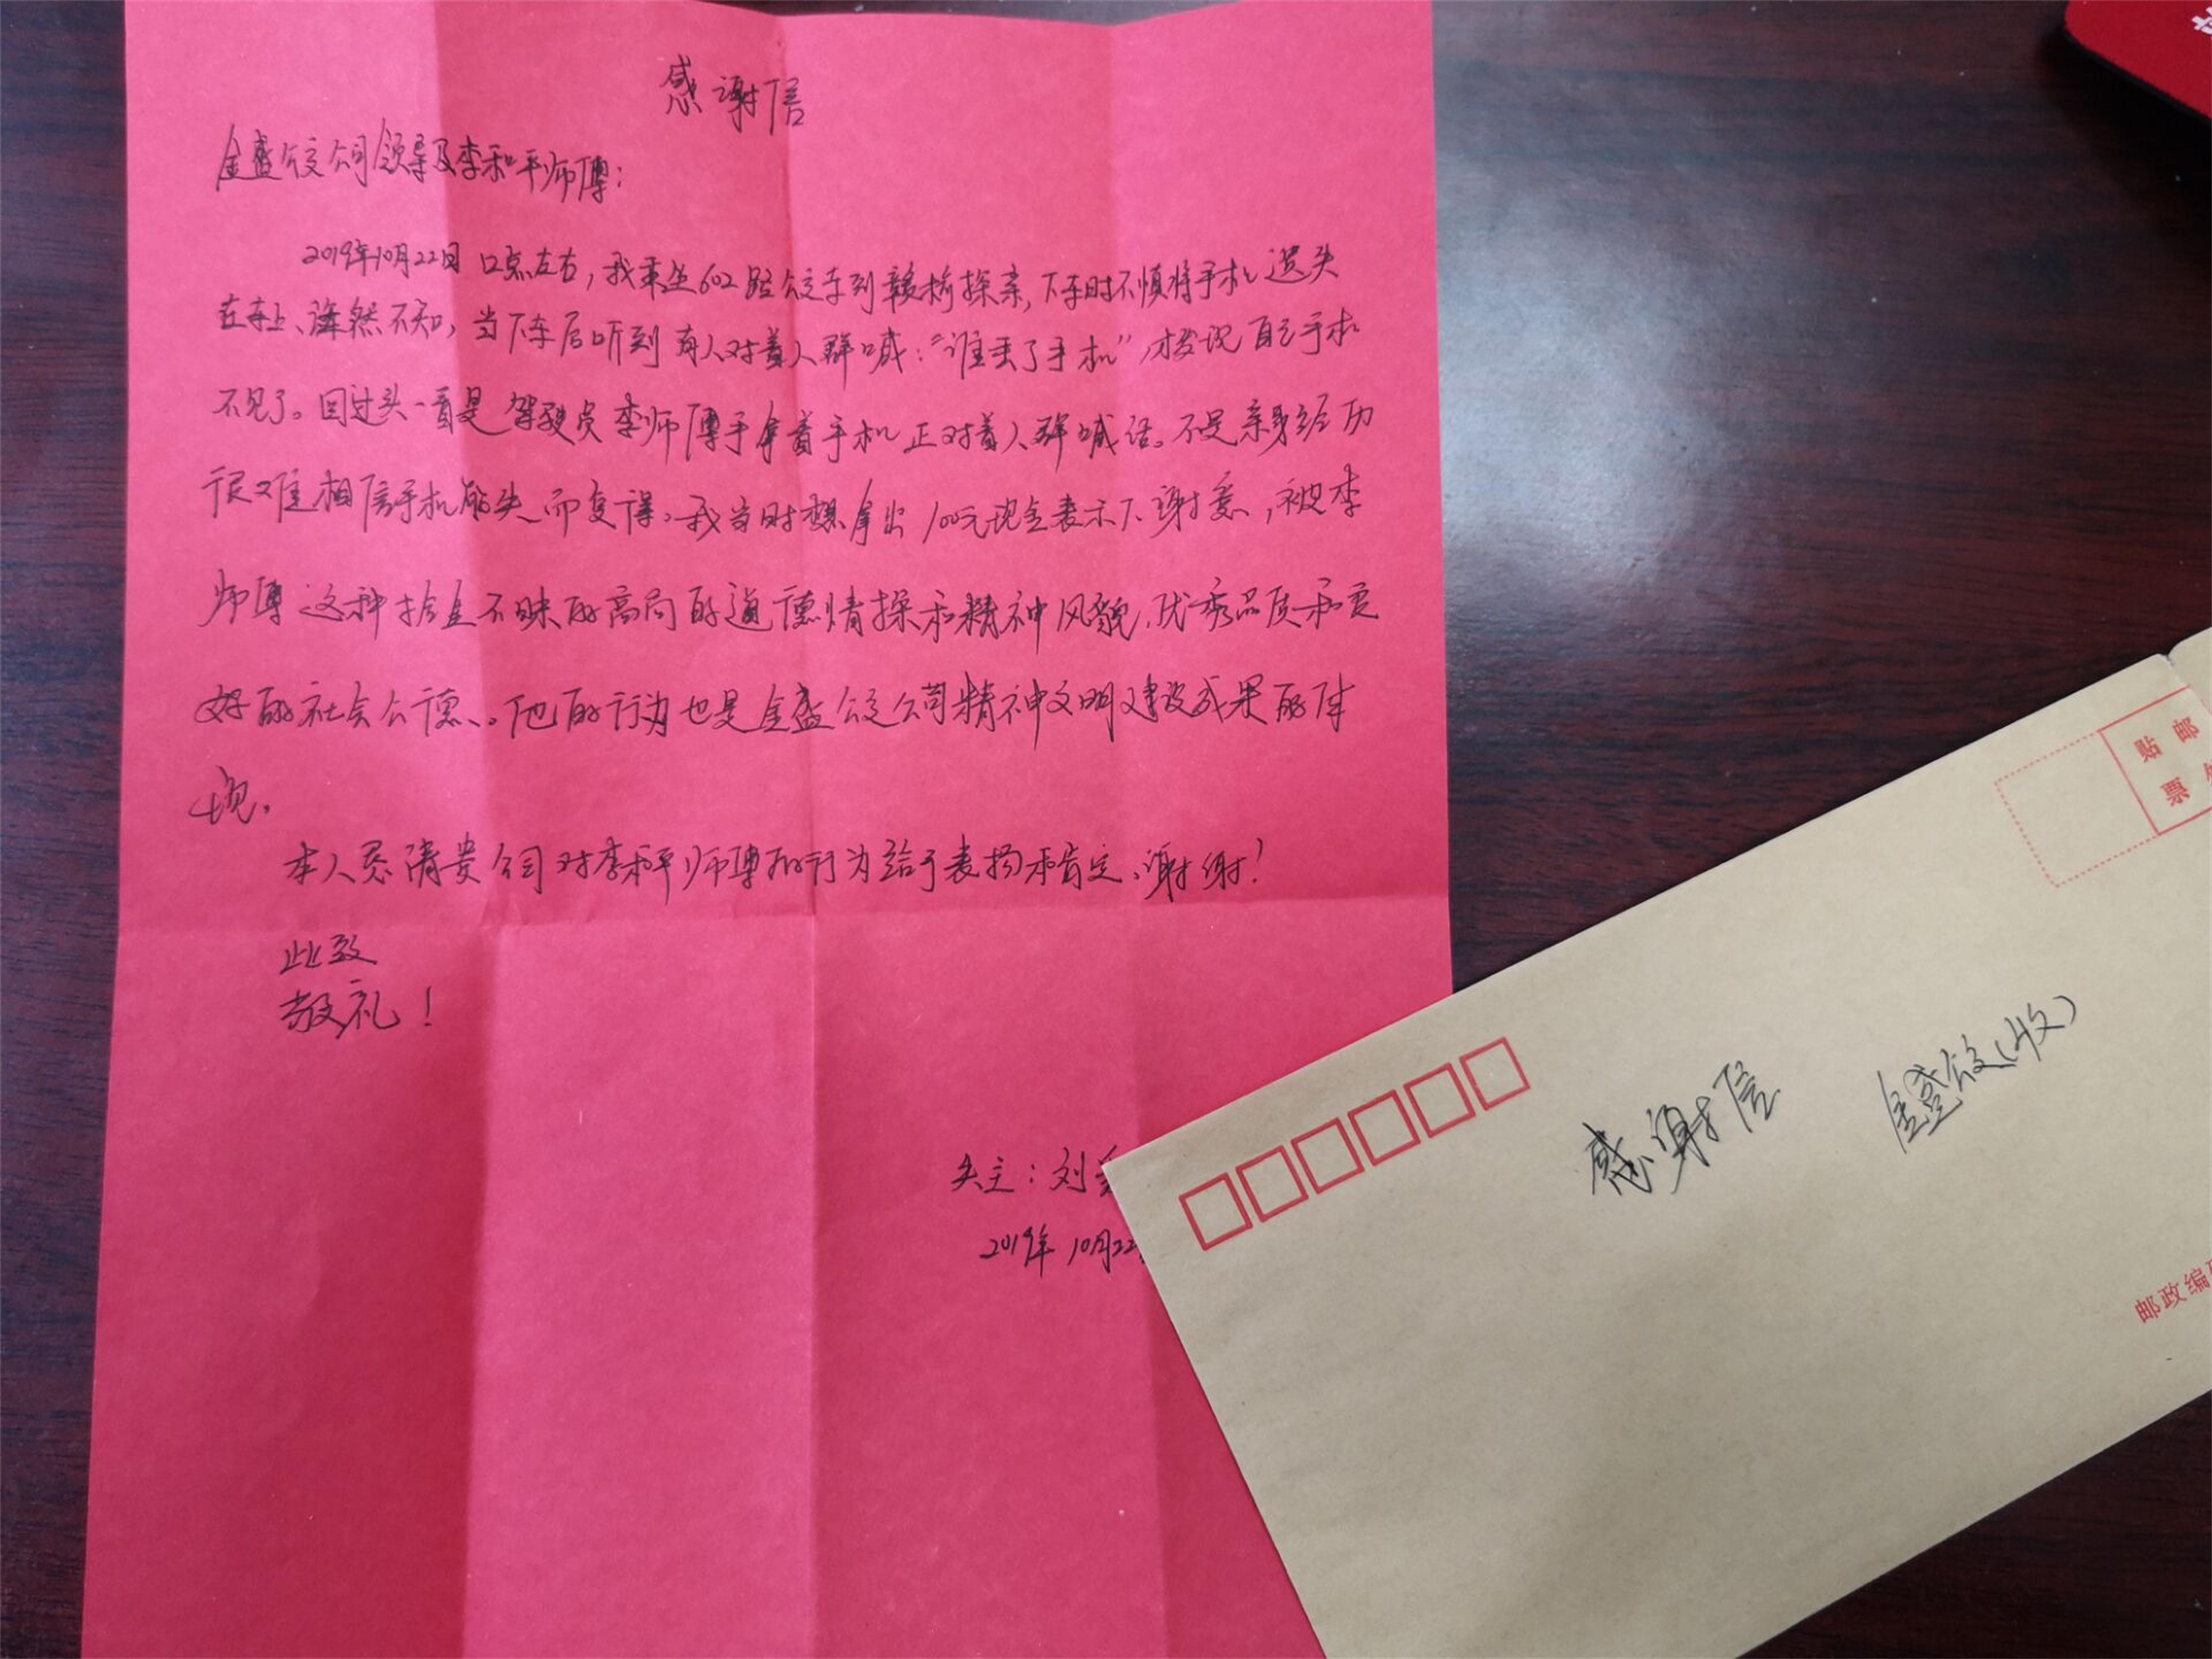 感谢信
金盛公交公司领导及李和平师傅：
2019年10月22日 12点左右，我乘坐602路公交车到赣榆探亲，下车时不慎将手机遗失
在车上、浑然不知，当下车后听到有人对着人群喊：“谁丢了手机”，才发现自己手机
不见了。回过头一看是驾驶员李师傅手拿着手机正对着人群喊话。不是亲身经历
很难相信手机能失而复得。我当时想拿出100元现金表示下谢意，被李
师傅这种拾金不昧的高尚的道德情操和精神风貌，优秀品质和良
好的社会公德、。他的行为也是金盛公交公司精神文明建设成果的体
现。
本人恳请贵公司对李和平师傅的行为给于表扬和肯定、谢谢！
此致
敬礼！
失主：刘
2019年10月22
贴 邮
票
感谢信
金盛公交（收）
邮政编